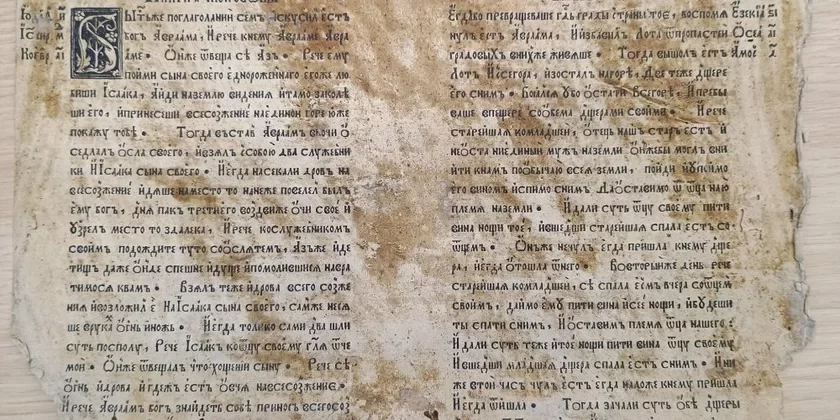 Бытъже поглаголании семъ искусил естъ
богъ Авраама, И рече кнему Аврааме Авра
аме • Онже ѿвеща се Азъ • Рече ему
пойми сына своего единороженнаго егоже лю
биши Ісаака, Айди наземлю видения йтамо заколе
ши его, йпринесеши всесозжение наединои горе юже
покажу тобе • Тогда въстав Авраамъ вночи о
седлалъ осла своего, йвзялъ ссобою два служебни
ки И Ісаака сына своего • И егда насекали дровъ на
въсозжение йдяше наместо то нанеже повелел былъ
ему богъ, дня пакъ третиего воздвиже очи свое й
узрелъ место то здалека, И рече кослужебником
своимъ подождите туто соослятем, Азъже йде
тищъ даже онде спешне идущи йпомолившися навра
тимося квам • Взялъ теже йдрова всего созже
ния йвозложил е На Ісаака сына своего, самже нося
ше врукахъ огнь йножь • Йегда толико сами два шли
суть посполу, Рече Ісаакъ коѿцу своему гля ѿче
мои • Онже ѿвещалъ что хощеши сыну • Рече се
огнь йдрова йгдежъ естъ овчя навсесозжение •
И рече Авраамъ богъ знайдеть собе приносъ всегосоз
Егдабо превращеваше гдь грады страны тое, воспомя
нулъ естъ Авраама, Й избавилъ Лота ѿпропастеи
градовыхъ внихуже живяше • Тогда вышолъ естъ
Лотъ Изсегора, йзосталъ нагоре, Две теже дщере
его сним • Боялся убо остати Всегоре, Й пребы
ваше впещере сообема дщерами своими • Й рече
старейшая комладшеи, отець нашъ старъ естъ й
неоста ниединый мужъ наземли онжебы моглъ вни
йти кнамъ пообычаю всея земли, пойди йупоймо
его виномъ йспимо снимъ Даоставимо ѿ ѿца наю
племя наземли • Й дали суть ѿцу своему пити
вина нощи тое, йвшедши старейшая спала естъ со
ѿцемъ • Онъже нечулъ егда пришла кнему дще
ра, йегда отошла ѿнего • Вовторыйже день рече
старейшая комладшеи, се спала еемъ вчера соѿцемъ
своимъ, даймо ему пити вина йсее нощи, йбудеши
ты спати снимъ, И оставимъ племя ѿца нашего •
Й дали суть теже йтое нощи пити вина ѿцу своему
Й вшедши младшая дщера спала естъ снимъ • Й ни
же втои часъ чулъ естъ егда наложе кнему пришла
Йегда ѿйшла • Тогда зачали суть обе дщеры